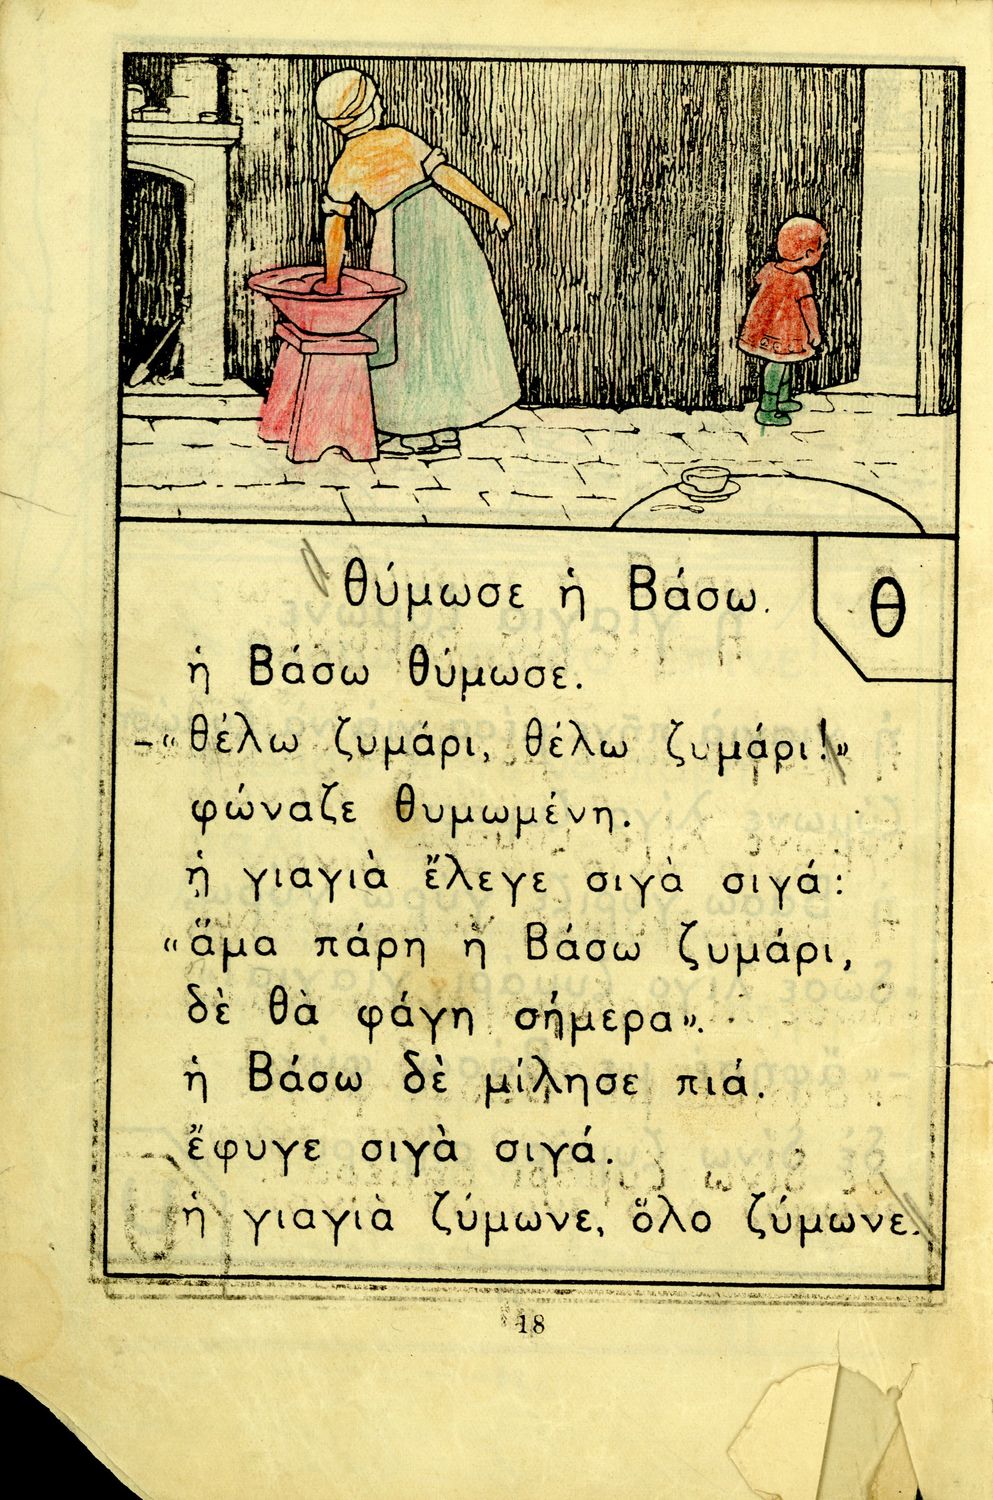 θύμωσε ἡ Βάσω.
θ
ἡ Βάσω θύμωσε.
-«θέλω ζυμάρι, θέλω ζυμάρι!»
φώναζε θυμωμένη.
ἡ γιαγιὰ ἔλεγε σιγὰ σιγά:
«ἅμα πάρη ἡ Βάσω ζυμάρι,
δὲ θὰ φάγη σήμερα».
ἡ Βάσω δὲ μίλησε πιά.
ἔφυγε σιγὰ σιγά.
ἡ γιαγιὰ ζύμωνε, ὅλο ζύμωνε.
18